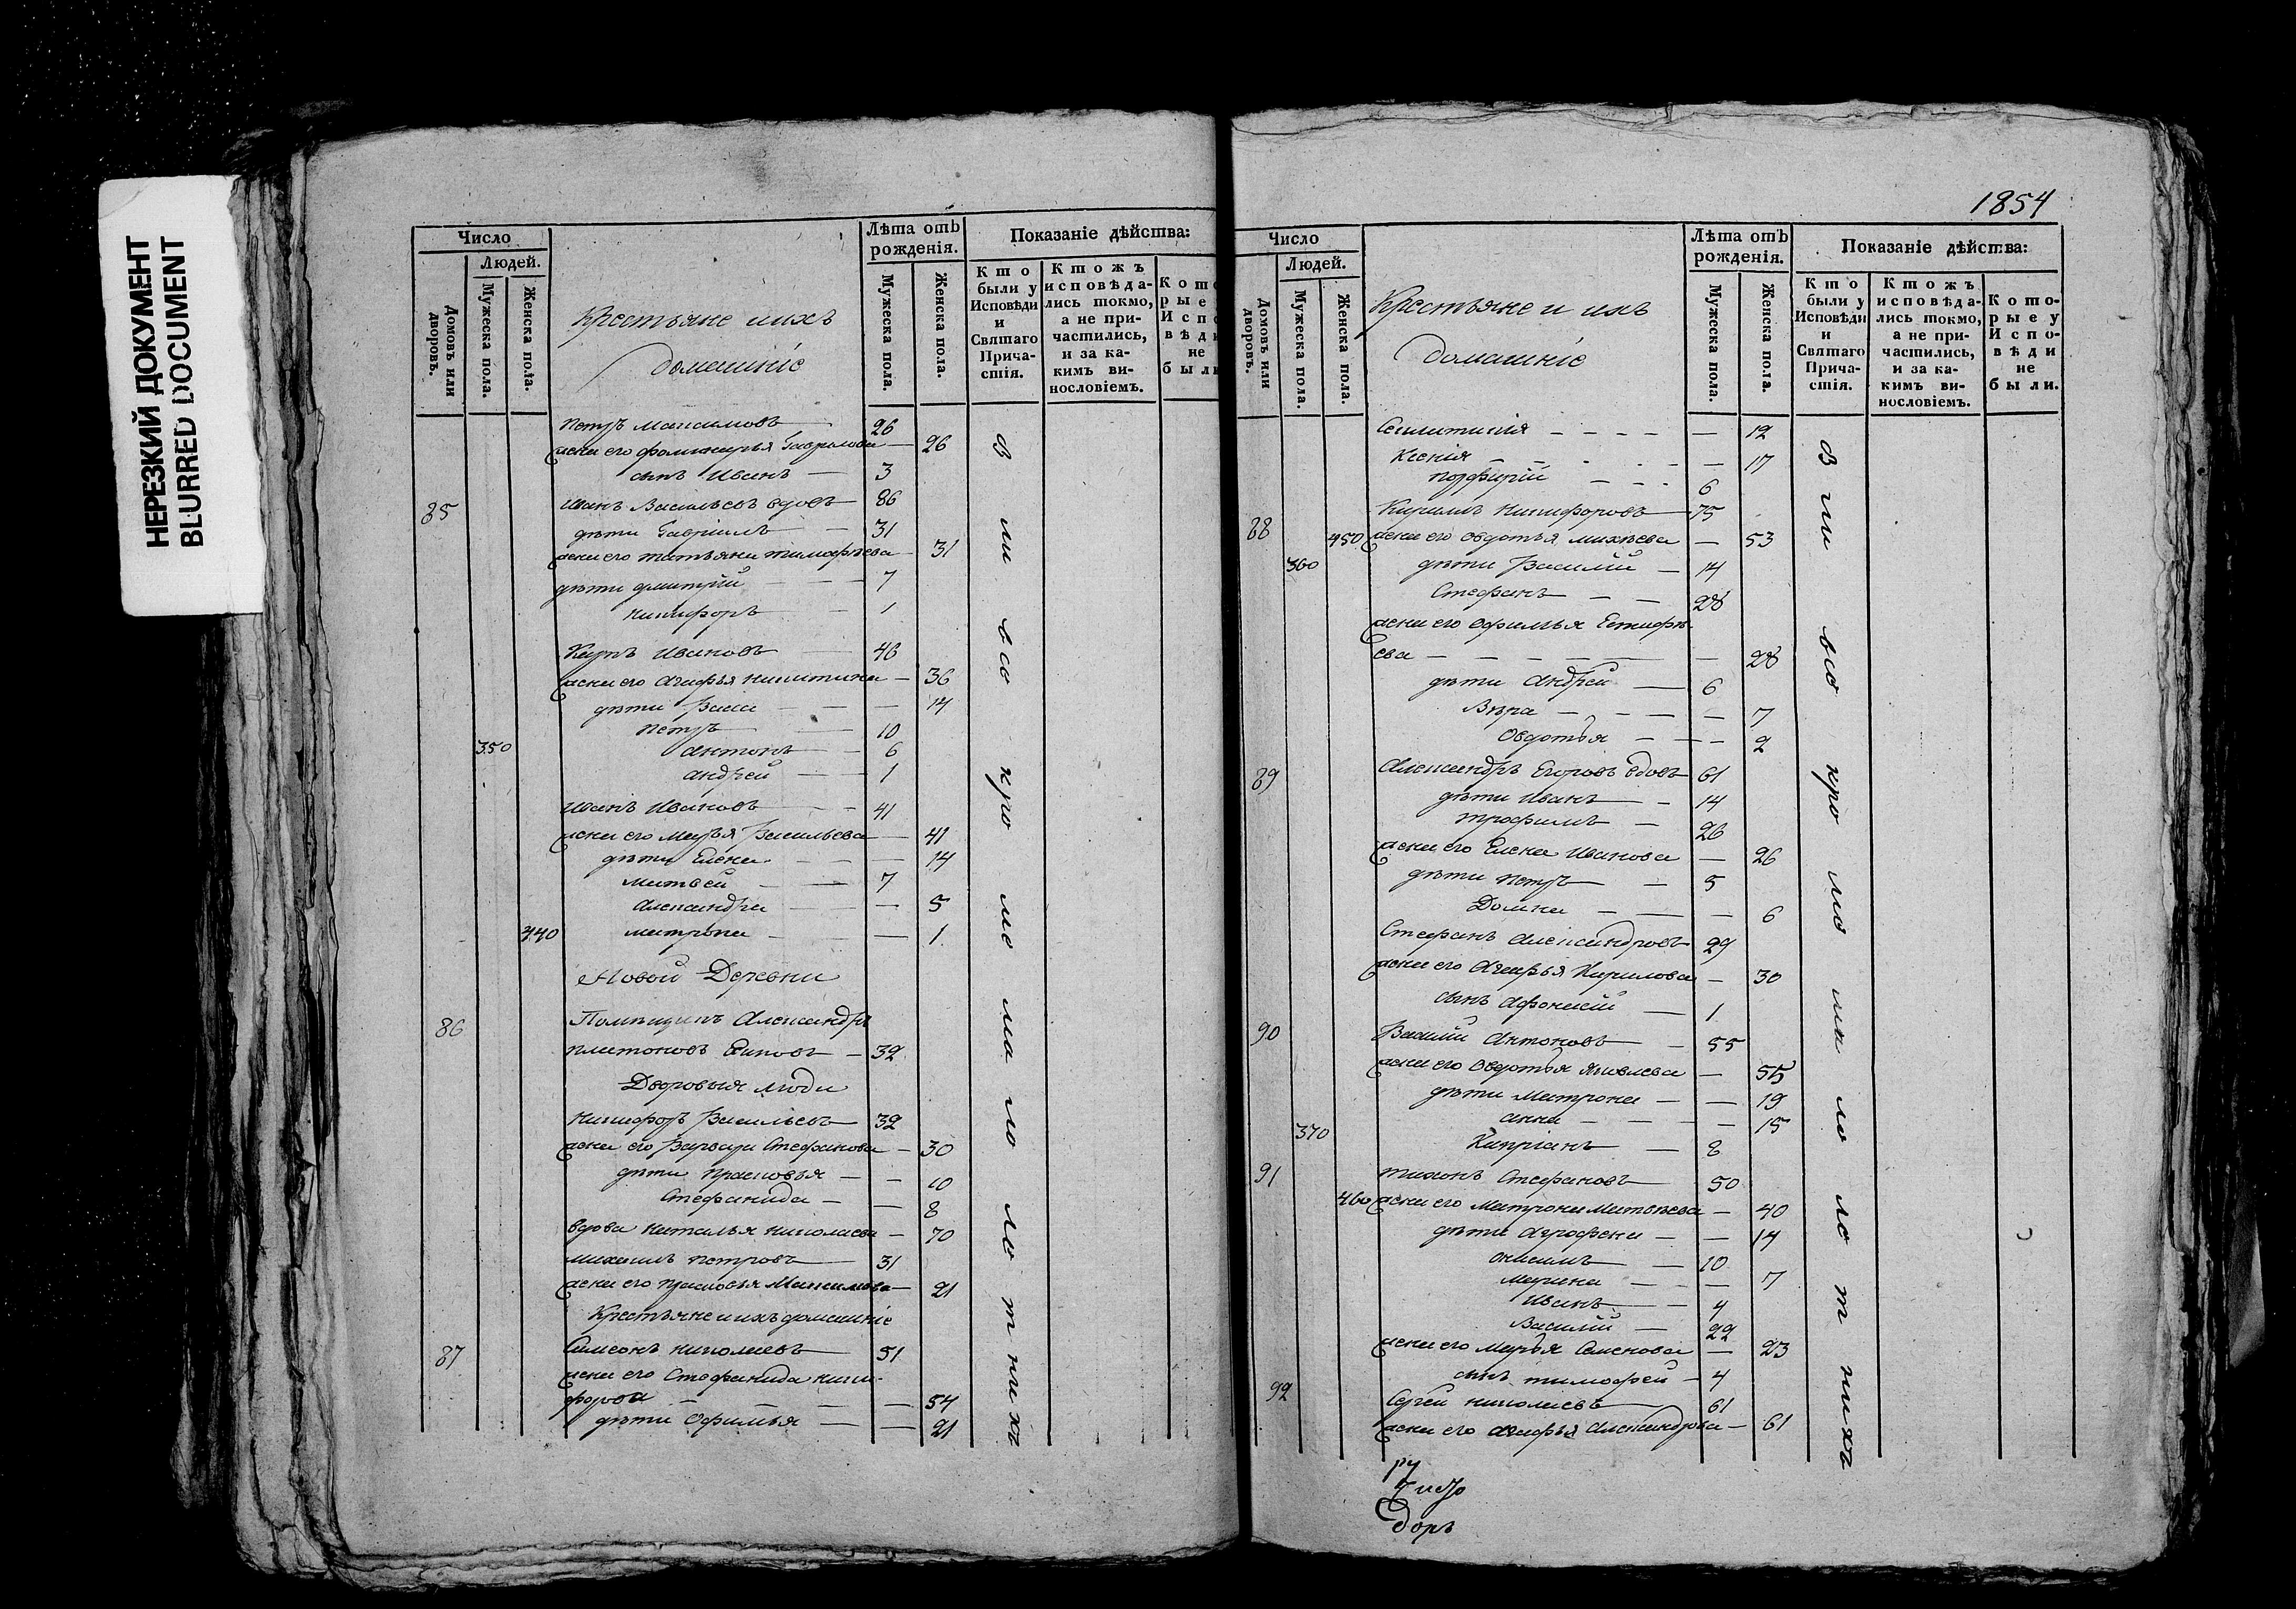 НЕРЕЗКИЙ ДОКУМЕНТ
BLURRED DOCUMENT
Число
Людей.
Домовъ или дворовъ.
Мужеска пола.
Женска пола.
Крестьяне и ихъ
домашніе
Лѣта отъ рожденія.
Мужеска пола.
Женска пола.
Показаніе дѣйства:
Кто были у Исповѣди и Святаго Причастія.
Ктожъ исповѣдались токмо, а не причастились, и за какимъ винословіемъ.
Кото
рые
Испо
вѣди
не
были
Петръ Максимовъ — 26
жена его Гаврилова — 26
сынъ Иванъ — 3
85 Иванъ Васильевъ вдовъ — 86
дѣти Гавріилъ — 31
жена его Татьяна Тимофѣева — 31
дѣти Дмитрій — 7
Никифоръ — 1
Карпъ Ивановъ — 46
жена его Агафья Никитина — 36
дѣти Васса — 14
Петръ — 10
350 Антонъ — 6
Андрей — 1
Иванъ Ивановъ — 41
жена его Марья Васильева — 41
дѣти Елена — 14
Матвей — 7
Александра — 5
440 Матрона — 1
Новой Деревни
86 Помѣщикъ Александръ
Платоновъ — 32
Дворовыя люди
Никифоръ Васильевъ 32
жена его Варвара Стефанова — 30
дѣти Прасковья — 10
Стефанида — 8
вдова Наталья Николаева — 70
Михаилъ Петровъ — 31
жена его Прасковья Максимова — 21
Крестьяне и ихъ домашніе
87 Симеонъ Николаевъ — 51
жена его Стефанида Ники-
форова — 54
дѣти Офимья — 21
В ли во кро ме ма ло ле т нихъ
1854
Число
Людей.
Домовъ или дворовъ.
Мужеска пола.
Женска пола.
Крестьяне и ихъ
домашніе
Лѣта отъ рожденія.
Мужеска пола.
Женска пола.
Показаніе дѣйства:
Кто были у Исповѣди и Святаго Причастія.
Ктожъ исповѣдались токмо, а не причастились, и за какимъ винословіемъ.
Которые у Исповѣди не были.
12
Ксенія — 17
Порфирій — 6
88 Кирилъ Никифоровъ — 75
450 жена его Овдотья Михѣева — 53
360 дѣти Василій — 14
Стефанъ — 28
жена его Офимья Естифѣ-
ева — 28
дѣти Андрей — 6
Вѣра — 7
Овдотья — 2
89 Александръ Егоровъ вдовъ 61
дѣти Иванъ — 14
Трофимъ — 26
жена его Елена Иванова — 26
дѣти Петръ — 5
Домна — 6
Стефанъ Александровъ 29
жена его Агафья Кирилова — 30
сынъ Афонасій — 1
90 Василій Антоновъ — 55
жена его Овдотья Яковлева — 55
дѣти Матрона — 19
Анна — 15
370 Кипріанъ — 8
91 Тихонъ Стефановъ 50
460 жена его Матрона Матвѣева — 40
дѣти Агрофена — 14
Онисимъ — 10
Марина — 7
Иванъ — 4
Василій — 22
жена его Марья Семенова — 23
сынъ Тимофей — 4
92 Сергей Николаевъ 61
жена его Агафья Александрова — 61
В ли во кро ма ло ле т нихъ
доръ